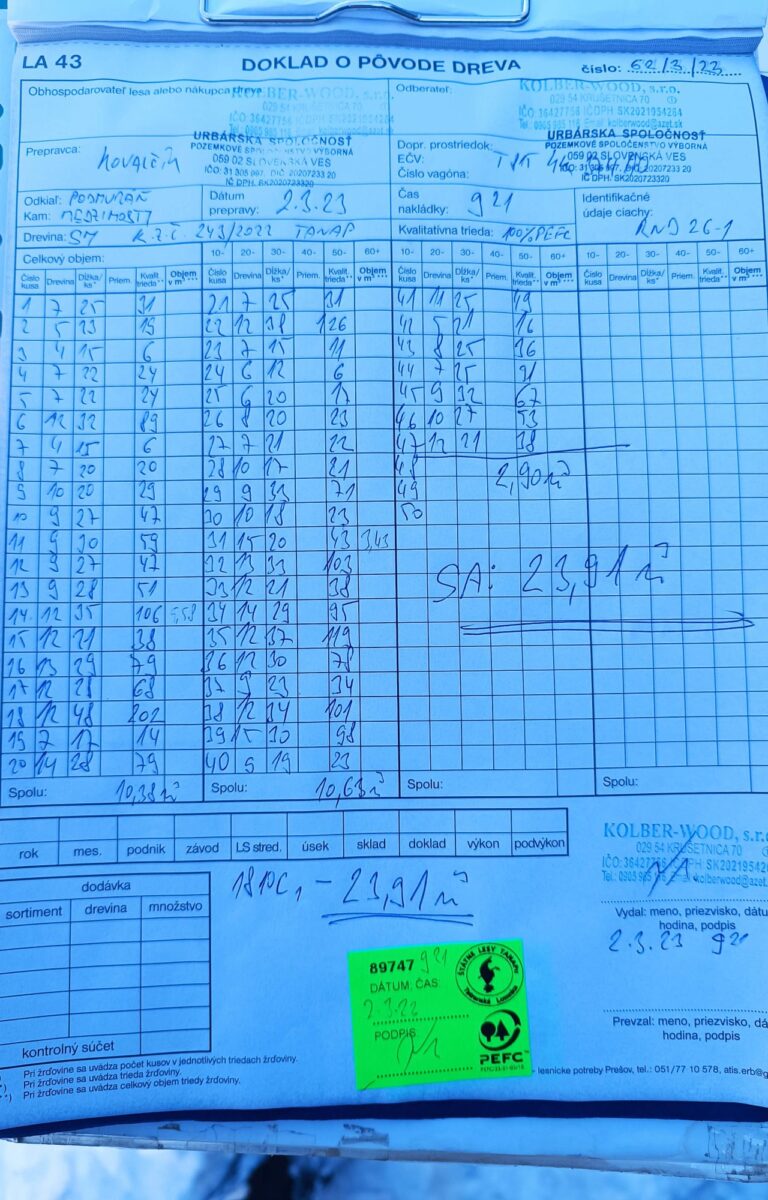 LA 43 DOKLAD O PÔVODE DREVA číslo: 62/3/23
Obhospodarovateľ lesa alebo nákupca dreva
KOLBER-WOOD, s.r.o.
029 54 KRUŠETNICA 70
Odberateľ:
KOLBER-WOOD, s.r.o.
029 54 KRUŠETNICA 70
IČO: 36427756 IČDPH SK2021954264
Prepravca: Kovalčík
URBÁRSKA SPOLOČNOSŤ
POZEMKOVÉ SPOLOČENSTVO VÝBORNÁ
059 02 SLOVENSKÁ VES
IČ DPH. SK2020723320
Dopr. prostriedok:
EČV:
Číslo vagóna:
URBÁRSKA SPOLOČNOSŤ
POZEMKOVÉ SPOLOČENSTVO VÝBORNÁ
059 02 SLOVENSKÁ VES
IČ DPH. SK2020723320
Odkiaľ: PODMURÁŇ
Kam: MEDZIMOSTY
Dátum prepravy: 2.3.23
Čas nakládky: 9 21
Identifikačné údaje ciachy: RND 26-1
Drevina: SM K.Z.Č. 243/2022 TANAP
Kvalitatívna trieda: 100% PEFC
Celkový objem:
10- 20- 30- 40- 50- 60+ 10- 20- 30- 40- 50- 60+ 10- 20- 30- 40- 50- 60+
Číslo kusa Drevina Dĺžka/ks* Priem. Kvalit. trieda** Objem v m³***
1 7 25 31 21 7 25 31 41 11 25 49
2 5 23 15 22 12 38 126 42 5 21 16
3 4 15 6 23 7 15 11 43 8 25 36
4 7 22 24 24 6 12 6 44 7 25 31
5 7 22 24 25 6 20 17 45 9 32 67
6 12 32 89 26 8 20 23 46 10 27 53
7 4 15 6 27 7 21 22 47 12 21 38
8 7 20 20 28 10 17 21 48 2,90m³
9 10 20 29 29 9 33 71 49
10 9 27 47 30 10 18 23 50
11 9 30 59 31 15 20 43 3,43
12 9 27 47 32 13 33 103
13 9 28 51 33 12 21 38
14 12 35 106 5,58 34 14 29 95
15 12 21 38 35 12 37 119
16 13 29 79 36 12 30 78
17 12 28 68 37 9 23 34
18 12 48 202 38 12 34 101
19 7 17 14 39 15 30 98
20 14 28 79 40 9 19 23
SA: 23,91 m³
Spolu: 10,38m³ Spolu: 10,63m³ Spolu: Spolu:
rok mes. podnik závod LS stred. úsek sklad doklad výkon podvýkon
KOLBER-WOOD, s.r.o.
029 54 KRUŠETNICA 70
dodávka
sortiment drevina množstvo
kontrolný súčet
23,91 m³
Vydal: meno, priezvisko, dátu
hodina, podpis
2.3.23 9 21
89747 9 21
DÁTUM: ČAS:
PODPIS:
ŠTÁTNE LESY TANAPu
Tatranská Lomnica
PEFC
Prevzal: meno, priezvisko, dá
hodina, podpis
Pri žrďovine sa uvádza počet kusov v jednotlivých triedach žrďoviny.
Pri žrďovine sa uvádza trieda žrďoviny.
Pri žrďovine sa uvádza celkový objem triedy žrďoviny.
- lesnícke potreby Prešov, tel.: 051/77 10 578, atis.erb@g